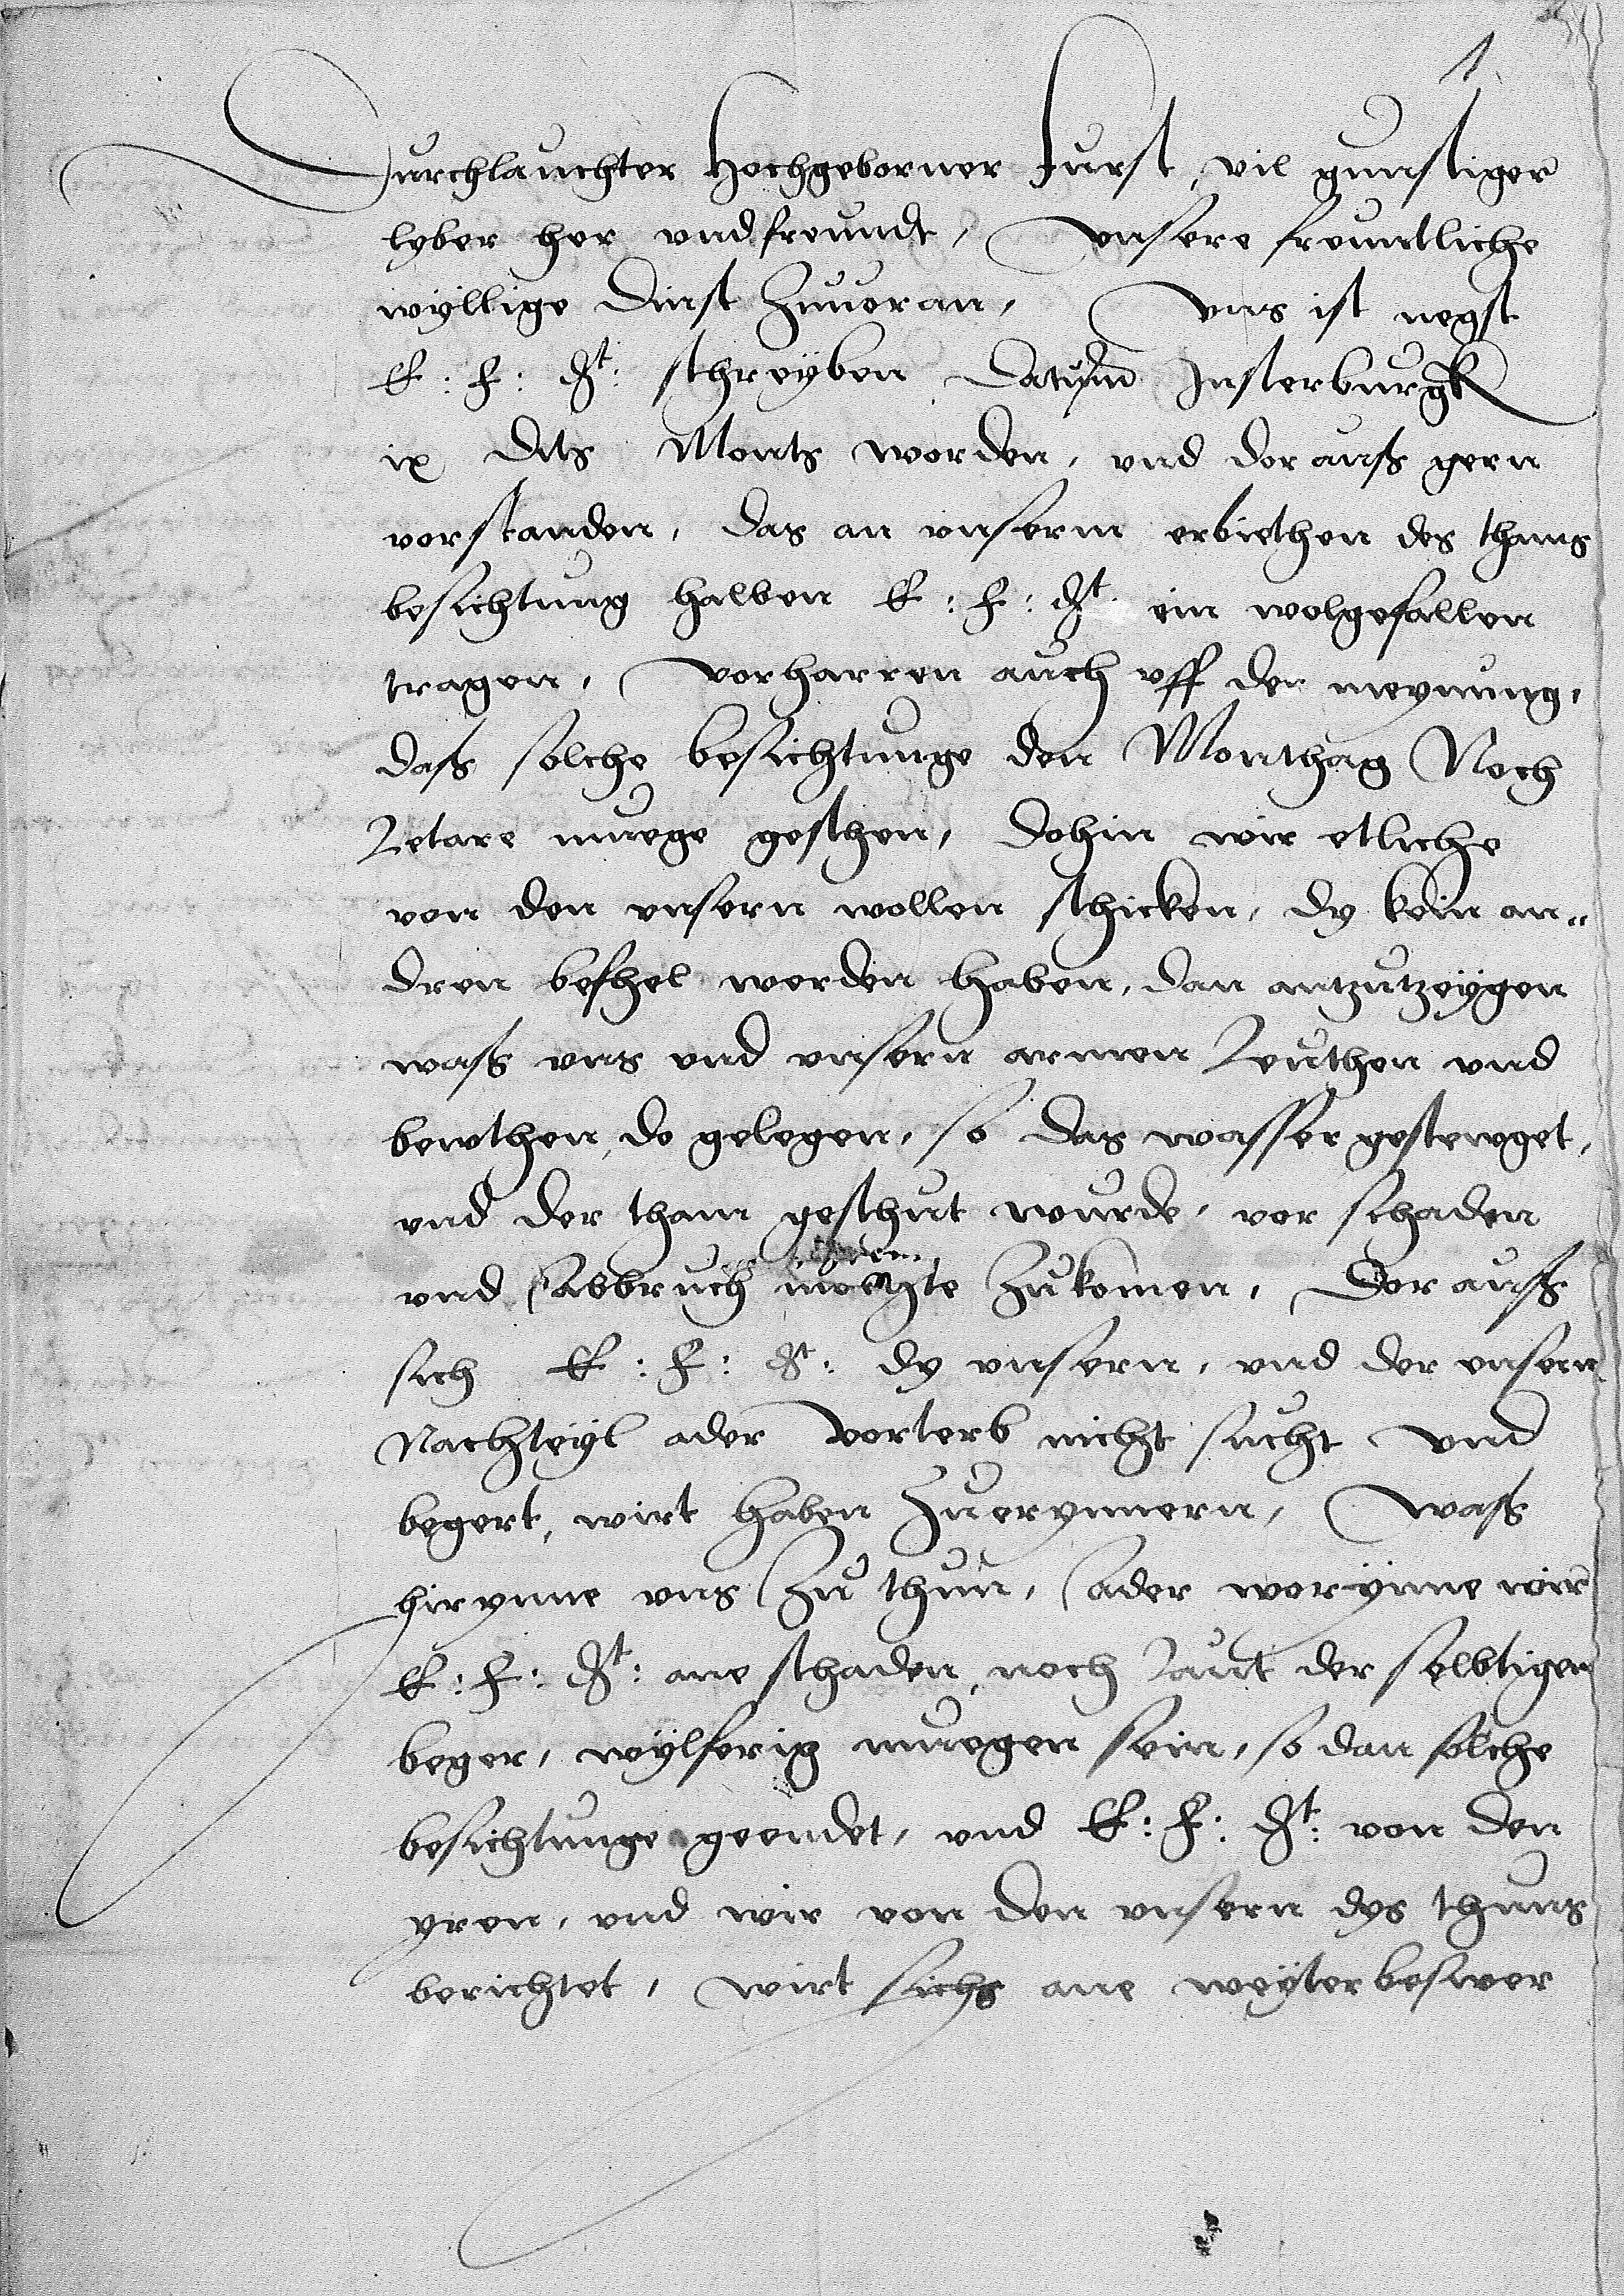 1
Durchlauchter Hochgeborner Furst, vil gunstiger
lyber her vnd freundt, Vnsere freuntliche
wyllige dinst zuuoran, Vns ist negst
E: F: Gt: schreyben Datum Insterburgk
ix dits Monts worden, vnd dorauß gern
vorstanden, das an vnserm erbiethen des thams
besichtung halben E: F: Gt: ein wolgefallen
tragen, Vorharren auch vff der meynung,
daß solche besichtunge den Monthag Noch
Letare muege geschen, Dohin wir etliche
von den vnsern wollen schicken, dy kein an„
dren befhel werden haben, dan antzutzeygen
waß vns vnd vnsern armen Leuthen vnd
bewthen, do gelegen, so das wasser gestewget,
vnd der tham geschut wurde, vor schaden
vnd Abbruch mochte zukomen, Dor auß
sich E: F: Gt: dy vnsern, vnd der vnsern
Nachteyl ader Vorterb nicht sucht Vnd
begert, wirt haben zuerynnern, Waß
hirynne vns zu thun, Ader worynne wir
E: F: Gt: ane schaden, noch Laut der selbtigen
beger, wylferig muegen sein, so dan solche
besichtunge geendet, vnd E: F: Gt: von den
yren, vnd wir von den vnsern dys thuns
berichtet, wirt sichs ane weyter beswer